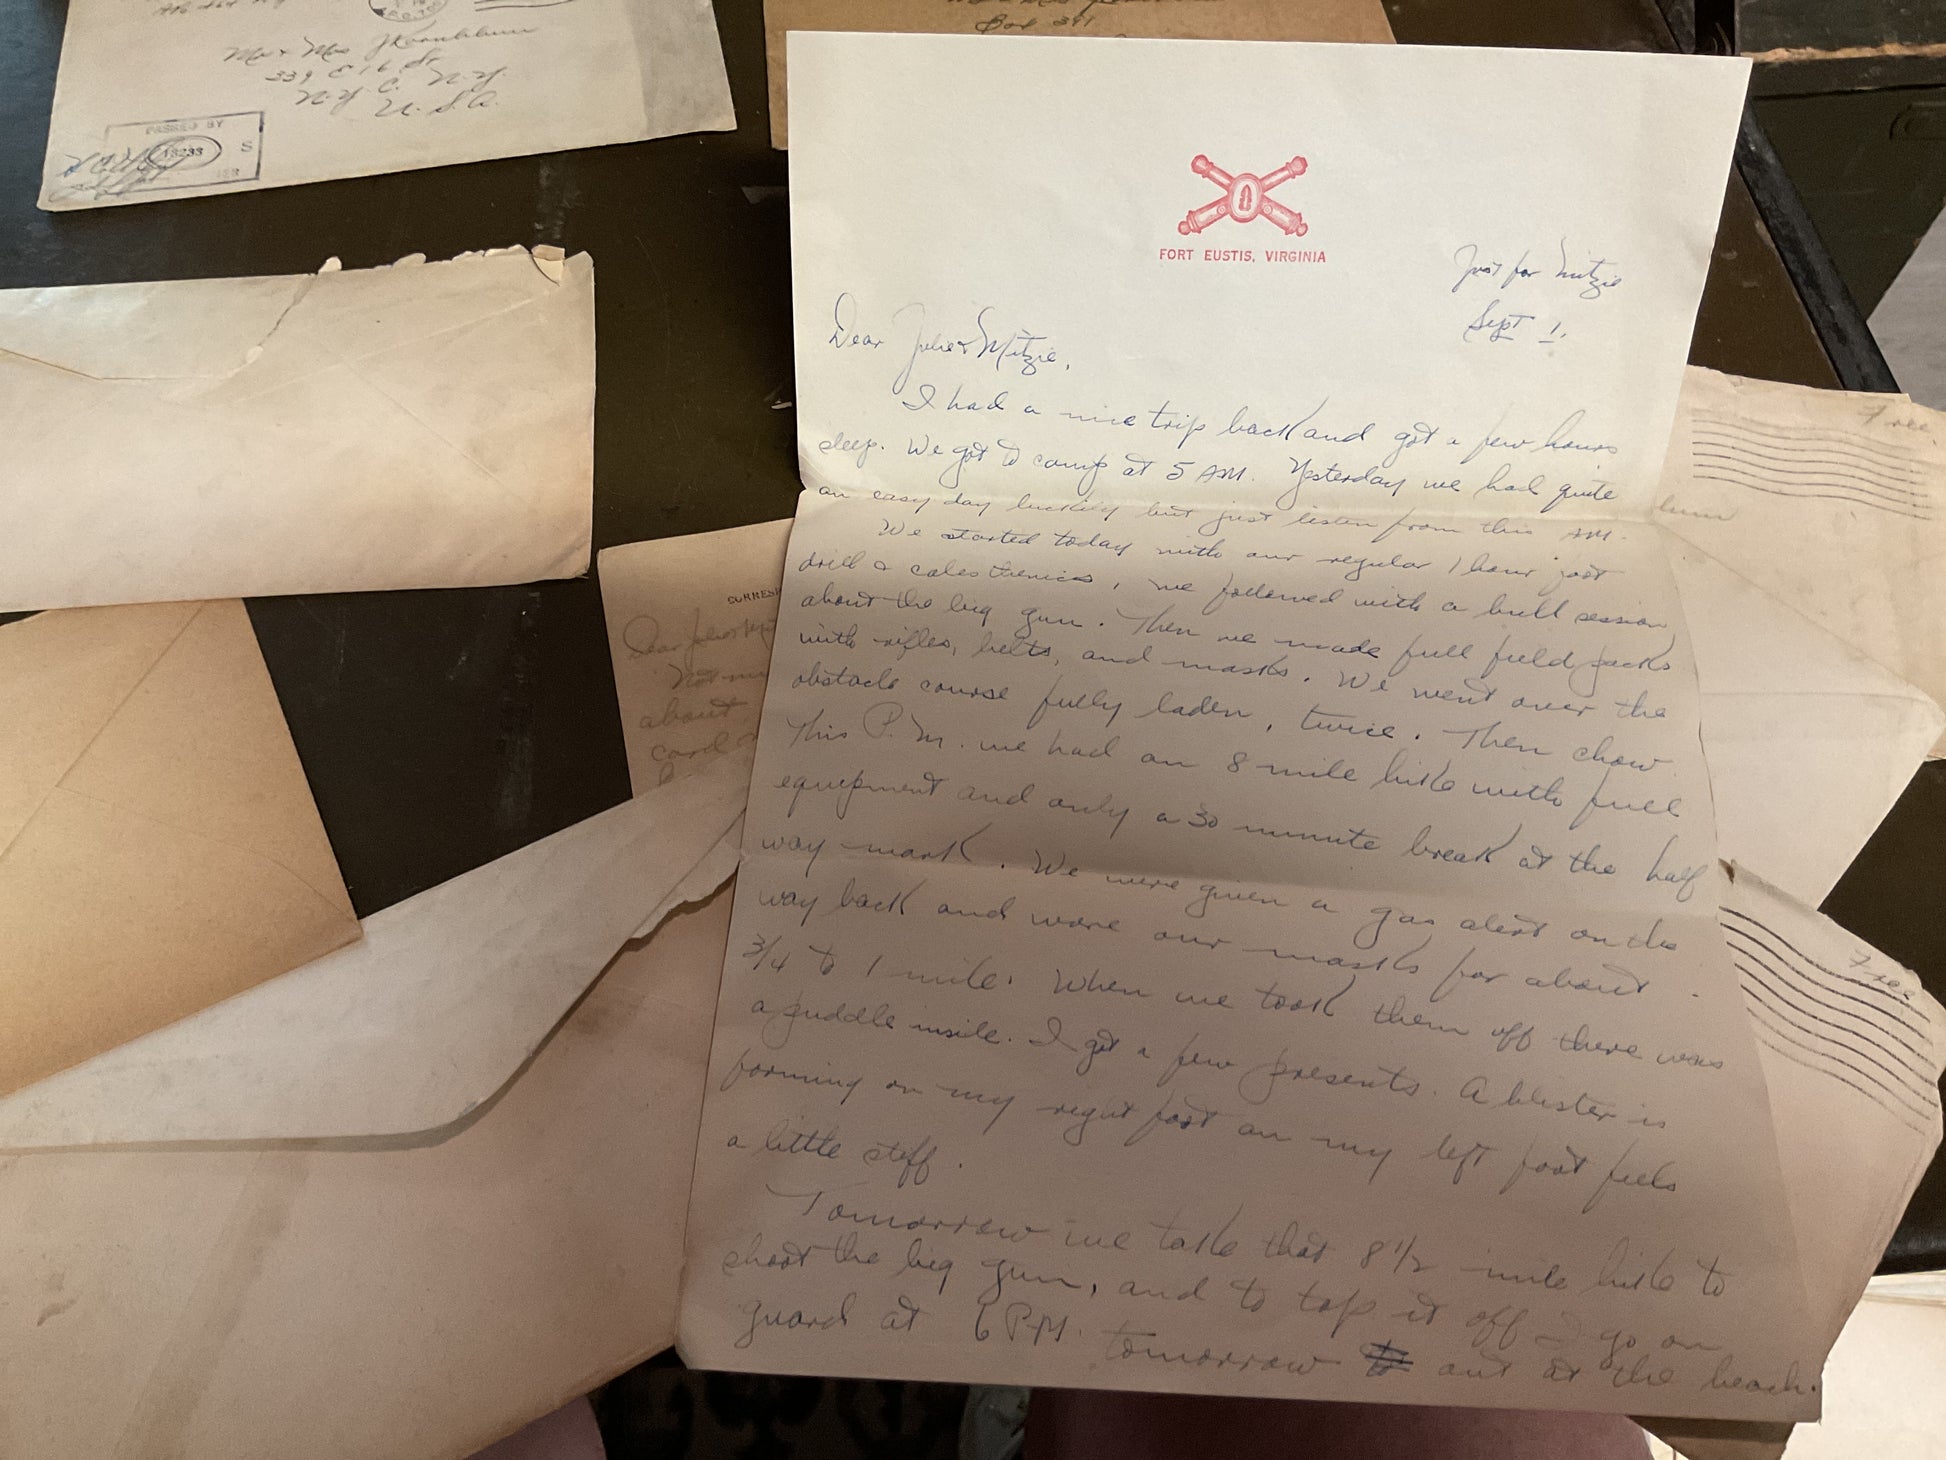 Mr & Mrs J Kornblum
339 E 16 St
N.Y.C. N.Y.
U.S.A.
PASSED BY
18233
S
Box 391
FORT EUSTIS, VIRGINIA
Just for Mitzie
Sept 1.
Dear Julie & Mitzie,
I had a nice trip back and got a few hours
sleep. We got to camp at 5 AM. Yesterday we had quite
an easy day luckily but just listen from this AM.
We started today with our regular 1 hour foot
drill & calesthenics, we followed with a bull session
about the big gun. Then we made full field packs
with rifles, belts, and masks. We went over the
obstacle course fully laden, twice. Then chow
This P.M. we had an 8 mile hike with full
equipment and only a 30 minute break at the half
way mark. We were given a gas alert on the
way back and wore our masks for about
3/4 to 1 mile. When we took them off there was
a puddle inside. I got a few presents. A blister is
forming on my right foot an my left foot feels
a little stiff.
Tomorrow we take that 8 1/2 mile hike to
shoot the big gun, and to top it off I go on
guard at 6 P.M. tomorrow out at the beach.
Free
Free
CORRES
Dear Julie
Not
about
card